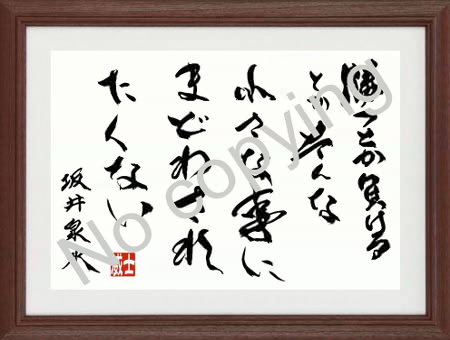 勝つとか負ける
とかそんな
小さな事に
まどわされ
たくない
坂井泉水
威士
No copying